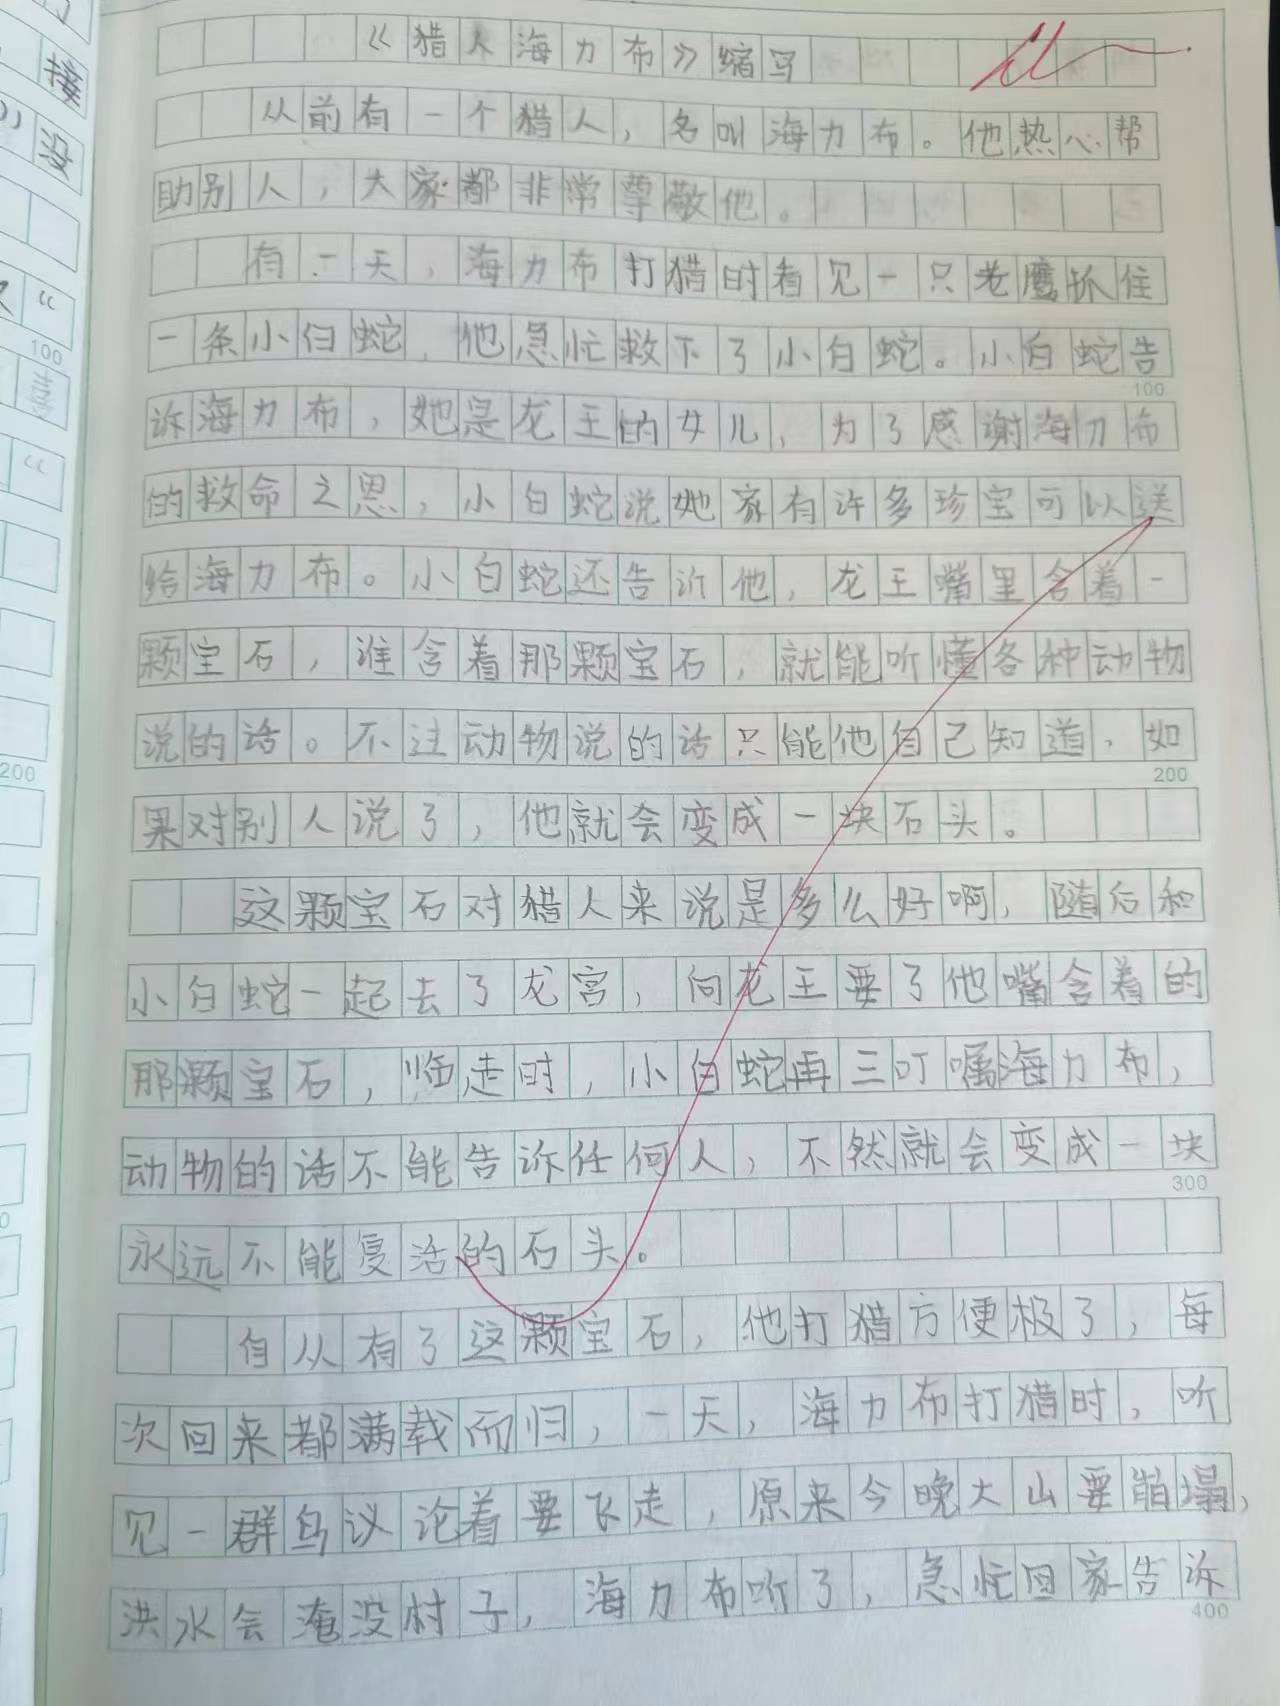 《猎人海力布》缩写
从前有一个猎人，名叫海力布。他热心帮
助别人，大家都非常尊敬他。
有一天，海力布打猎时看见一只老鹰抓住
一条小白蛇，他急忙救下了小白蛇。小白蛇告
100
诉海力布，她是龙王的女儿，为了感谢海力布
的救命之恩，小白蛇说她家有许多珍宝可以送
给海力布。小白蛇还告诉他，龙王嘴里含着一
颗宝石，谁含着那颗宝石，就能听懂各种动物
说的话。不过动物说的话只能他自己知道，如
200
果对别人说了，他就会变成一块石头。
这颗宝石对猎人来说是多么好啊，随后和
小白蛇一起去了龙宫，向龙王要了他嘴含着的
那颗宝石，临走时，小白蛇再三叮嘱海力布，
动物的话不能告诉任何人，不然就会变成一块
300
永远不能复活的石头。
自从有了这颗宝石，他打猎方便极了，每
次回来都满载而归，一天，海力布打猎时，听
见一群鸟议论着要飞走，原来今晚大山要崩塌，
洪水会淹没村子，海力布听了，急忙回家告诉
400
接
没
“
100
喜
“
200